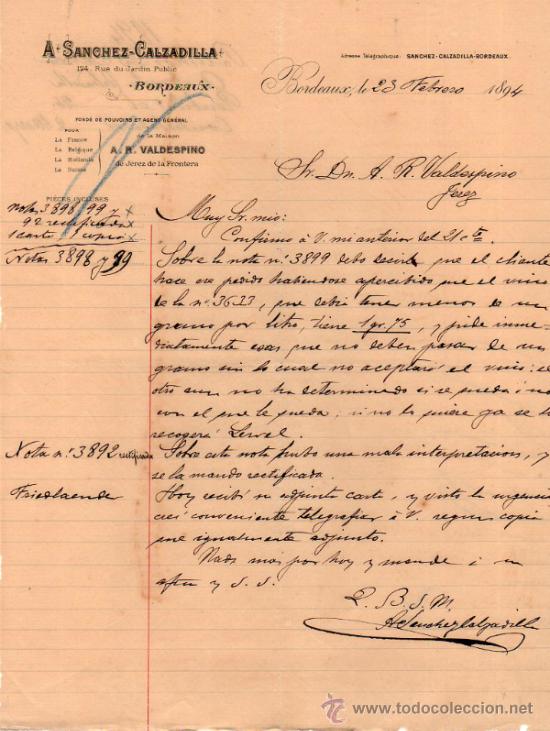 A. SANCHEZ-CALZADILLA
124, Rue du Jardin Public
BORDEAUX
Adresse Télégraphique: SANCHEZ-CALZADILLA-BORDEAUX
Bordeaux, le 23 Febrero 1894
FONDÉ DE POUVOIRS ET AGENT GÉNÉRAL
POUR
La France
La Belgique
La Hollande
La Suisse
de la Maison
A. R. VALDESPINO
de Jerez de la Frontera
Sr. Dn. A. R. Valdespino
Jerez
PIÈCES INCLUSES
Nota 3898 99 y
92 rectificada
1 carta 1 copia
Muy Sr. mio:
Confirmo á V. mi anterior del 21 cte.
Notas 3898 y 99
Sobre la nota nº 3899 debo decirle que el cliente
hace ese pedido habiendose apercibido que el vino
de la nº 3633, que debia tener menos de un
gramo por litro, tiene 1 gr. 75, y pide inme-
diatamente esas que no deben pasar de un
gramo sin lo cual no aceptará el vino; el
otro aun no ha determinado si se queda ó no
con el que le queda; si no lo quiere ya se lo
recogerá
Nota nº 3892 rectificada
Sobre esta nota hubo una mala interpretacion, y
se la mando rectificada.
Friedlaender
Hoy recibí su adjunta carta, y visto la urgencia
creí conveniente telegrafiar á V. segun copia
que igualmente adjunto.
Nada mas por hoy y mande á su
afmo y S. S.
Q. B. S. M.
A. Sanchez Calzadilla
todocoleccion
todocoleccion.net